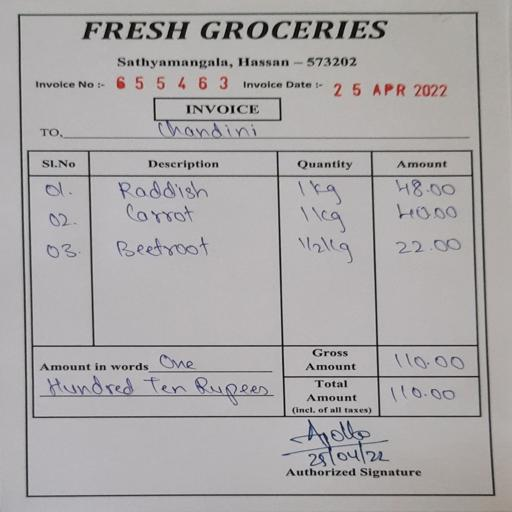 FRESH GROCERIES
Sathyamangala, Hassan – 573202
Invoice No :- 655463 Invoice Date :- 25 APR 2022
INVOICE
TO, Chandini
Sl.No Description Quantity Amount
01. Raddish 1kg 48.00
02. Carrot 1kg 40.00
03. Beetroot 1/2kg 22.00
Amount in words One
Hundred Ten Rupees
Gross
Amount 110.00
Total
Amount
(incl. of all taxes) 110.00
25/04/22
Authorized Signature